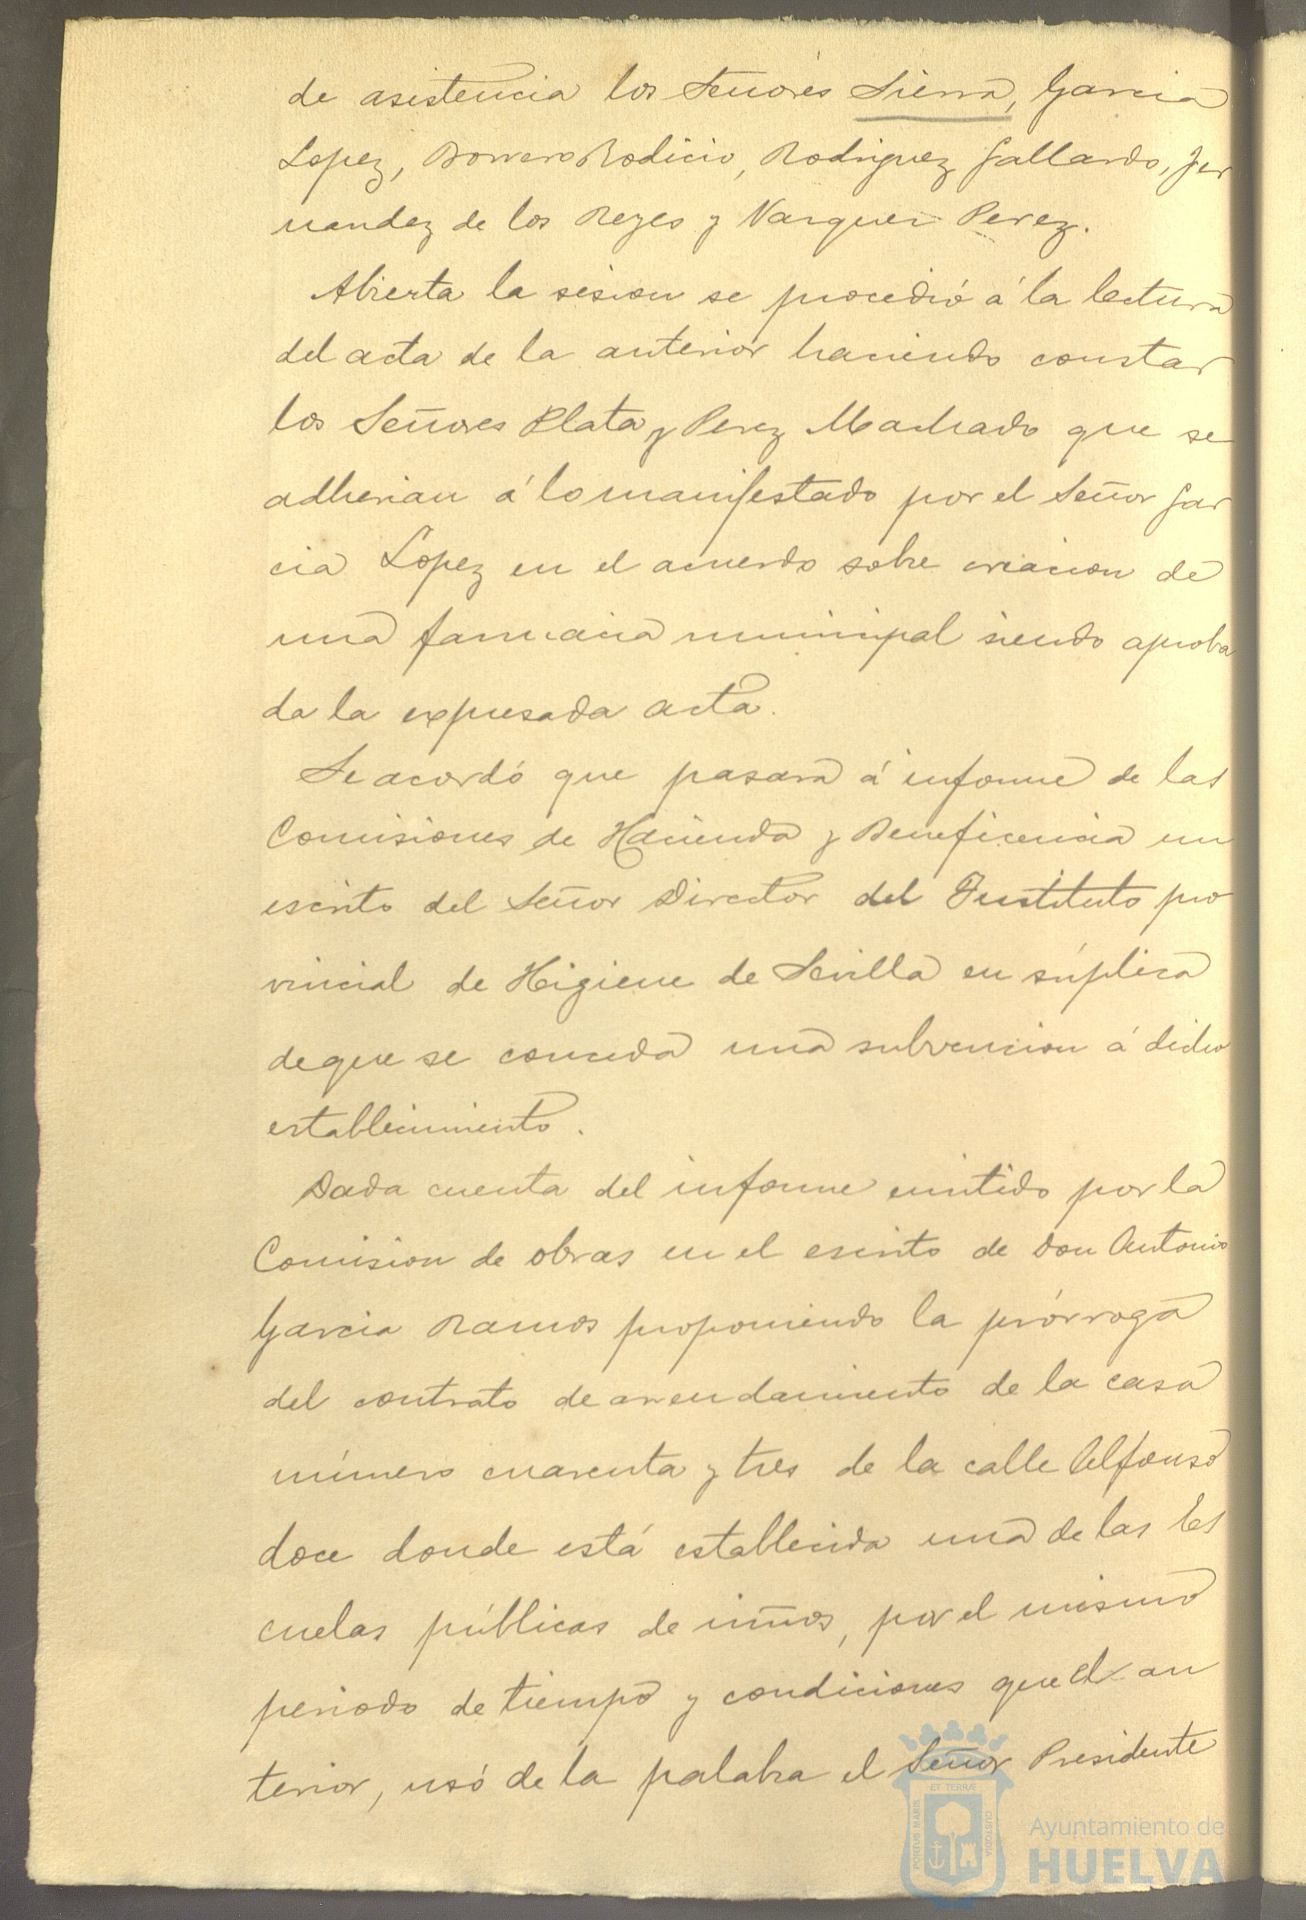 de asistencia los Señores Sierra, Garcia
Lopez, Borrero Rodicio, Rodriguez Gallardo, Fer
nandez de los Reyes y Vazquez Perez.
Abierta la sesion se procedió á la lectura
del acta de la anterior haciendo constar
los Señores Plata y Perez Machado que se
adherian á lo manifestado por el Señor Gar
cia Lopez en el acuerdo sobre creacion de
una farmacia municipal siendo aproba
da la expresada acta.
Se acordó que pasara á informe de las
Comisiones de Hacienda y Beneficencia un
escrito del Señor Director del Instituto pro
vincial de Higiene de Sevilla en súplica
de que se conceda una subvencion á dicho
establecimiento.
Dada cuenta del informe emitido por la
Comision de obras en el escrito de Don Antonio
Garcia Ramos proponiendo la prórroga
del contrato de arrendamiento de la casa
número cuarenta y tres de la calle Alfonso
doce donde está establecida una de las Es
cuelas públicas de niños, por el mismo
periodo de tiempo y condiciones que el an
terior, usó de la palabra el Señor Presidente
PORTUS MARIS ET TERRÆ CUSTODIA
Ayuntamiento de
HUELVA